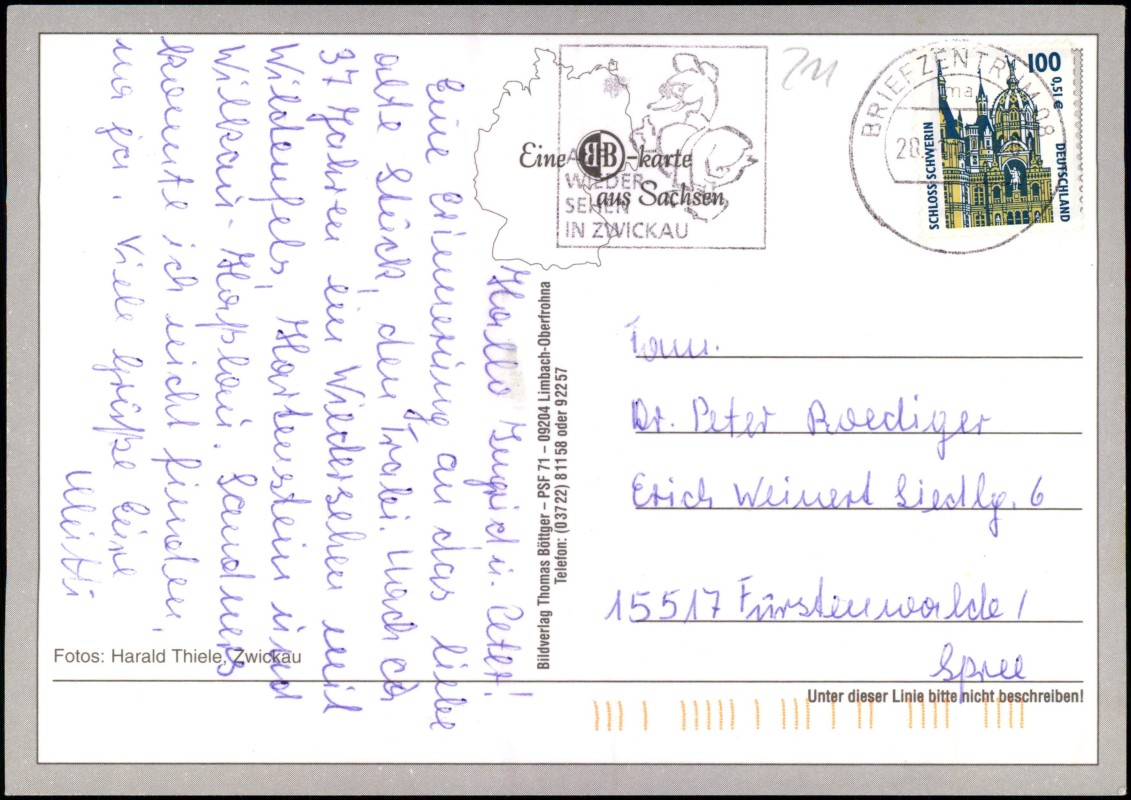 Hallo Ingrid u. Peter!
Eine Erinnerung an das liebe
alte Stück, den Trabi. Nach ca
37 Jahren ein Wiedersehen mit
Wildenfels, Hartenstein und
Wilkau-Haßlau. Sandners
konnte ich nicht finden,
na ja. Viele Grüße Eure
Fotos: Harald Thiele, Zwickau
Eine BHB-karte
aus Sachsen
WIEDER
SEHEN
IN ZWICKAU
Bildverlag Thomas Böttger – PSF 71 – 09204 Limbach-Oberfrohna
Telefon: (03722) 81158 oder 92257
BRIEFZENTRUM 08
28.
100
0,51 €
SCHLOSS SCHWERIN
DEUTSCHLAND
Fam.
Dr. Peter Roediger
Erich Weinert Siedlg. 6
15517 Fürstenwalde /
Spree
Unter dieser Linie bitte nicht beschreiben!